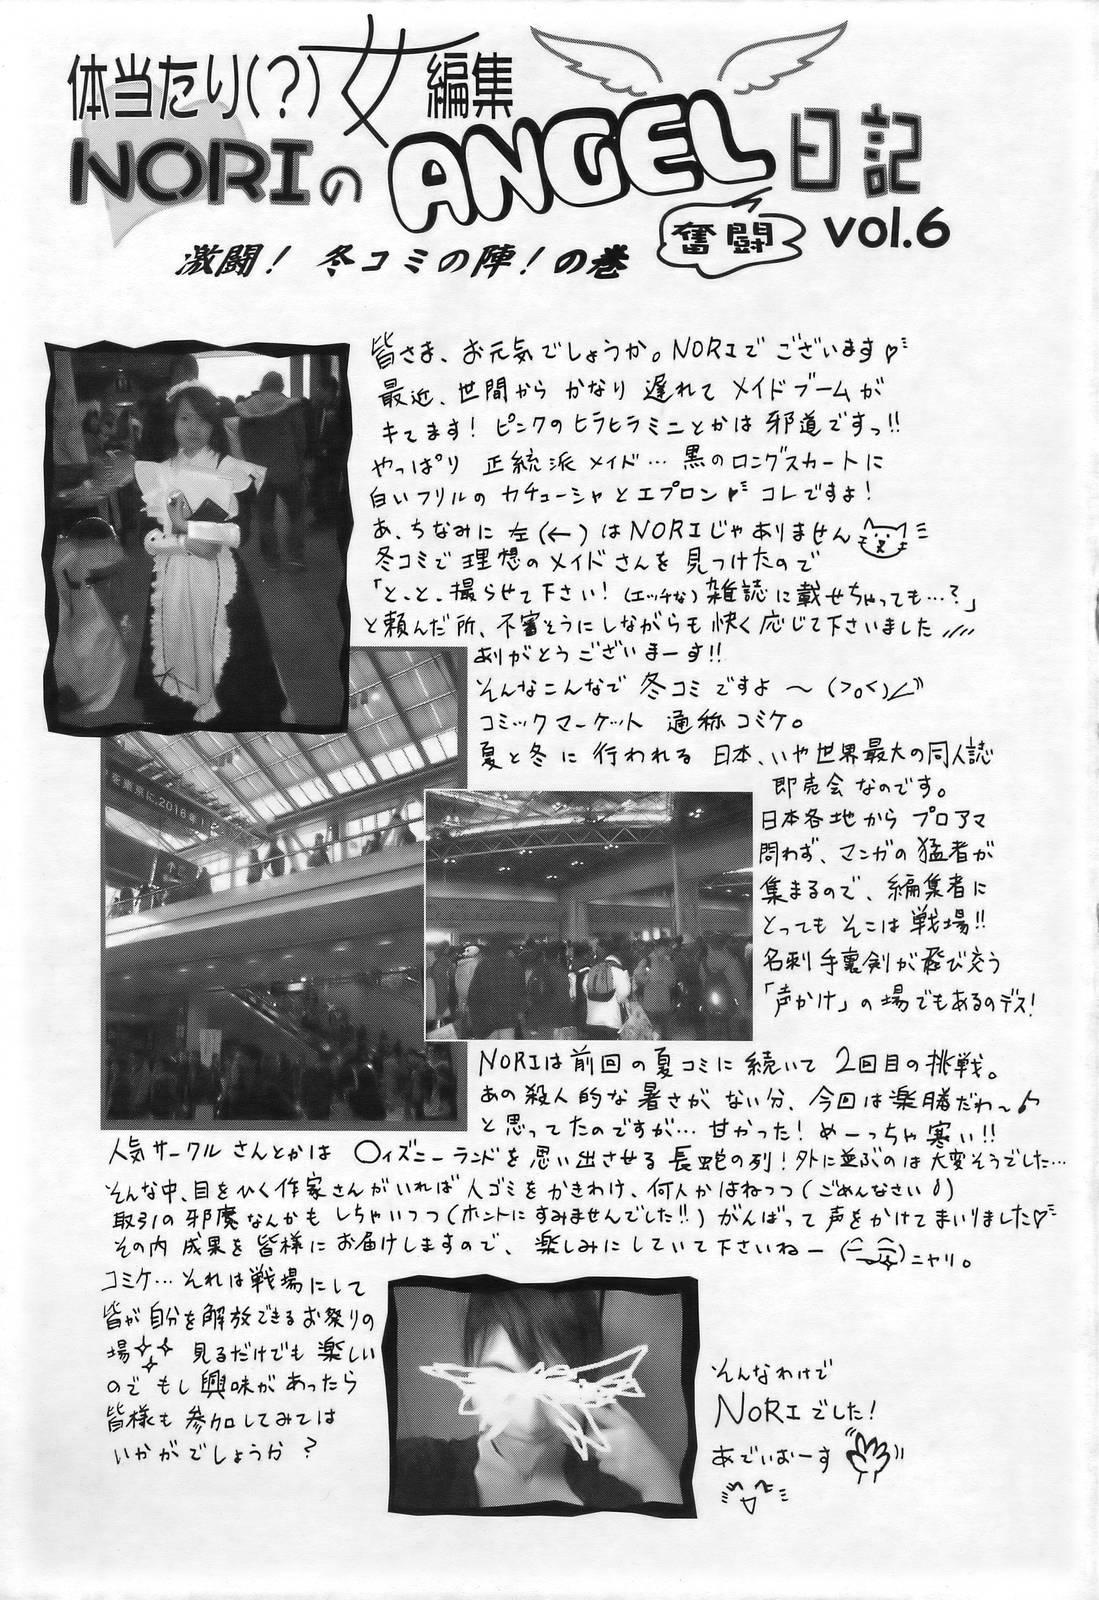 体当たり(?)女編集
NORIのANGEL日記
奮闘
vol.6
激闘！冬コミの陣！の巻
皆さま、お元気でしょうか。NORIでございます♡
最近、世間から かなり 遅れて メイドブームが
キてます！ピンクのヒラヒラミニとかは 邪道ですっ!!
やっぱり 正統派メイド… 黒のロングスカートに
白いフリルの カチューシャと エプロン♡ コレですよ！
あ、ちなみに 左(←)はNORIじゃありません
冬コミで 理想のメイドさんを 見つけたので
「と、と、撮らせて下さい！(エッチな)雑誌に載せちゃっても…？」
と頼んだ所、不審そうにしながらも 快く応じて下さいました
ありがとうございまーす!!
そんなこんなで 冬コミですよ 〜 (>o<)ノ
コミックマーケット 通称コミケ。
夏と冬に 行われる 日本、いや世界最大の同人誌
即売会なのです。
日本各地から プロアマ
問わず、マンガの猛者が
集まるので、編集者に
とっても そこは 戦場!!
名刺手裏剣が飛び交う
「声かけ」の場でもあるのデス！
を東京に、2016年
NORIは前回の夏コミに続いて 2回目の挑戦。
あの殺人的な暑さが ない分、今回は楽勝だわ〜♪
と思ってたのですが… 甘かった！めーっちゃ寒い!!
人気サークルさんとかは 〇ィズニーランドを思い出させる長蛇の列！外に並ぶのは大変そうでした…
そんな中、目をひく作家さんがいれば人ゴミをかきわけ、何人かはねつつ(ごめんなさい)
取引の邪魔なんかも しちゃいつつ(ホントにすみませんでした!!)がんばって声をかけてまいりました♡
その内 成果を皆様にお届けしますので、楽しみにしていて下さいねー ニヤリ。
コミケ…それは戦場にして
皆が自分を解放できるお祭りの
場 見るだけでも楽しい
のでもし興味があったら
皆様も 参加してみては
いかがでしょうか？
そんなわけで
NORIでした！
あでぃおーす